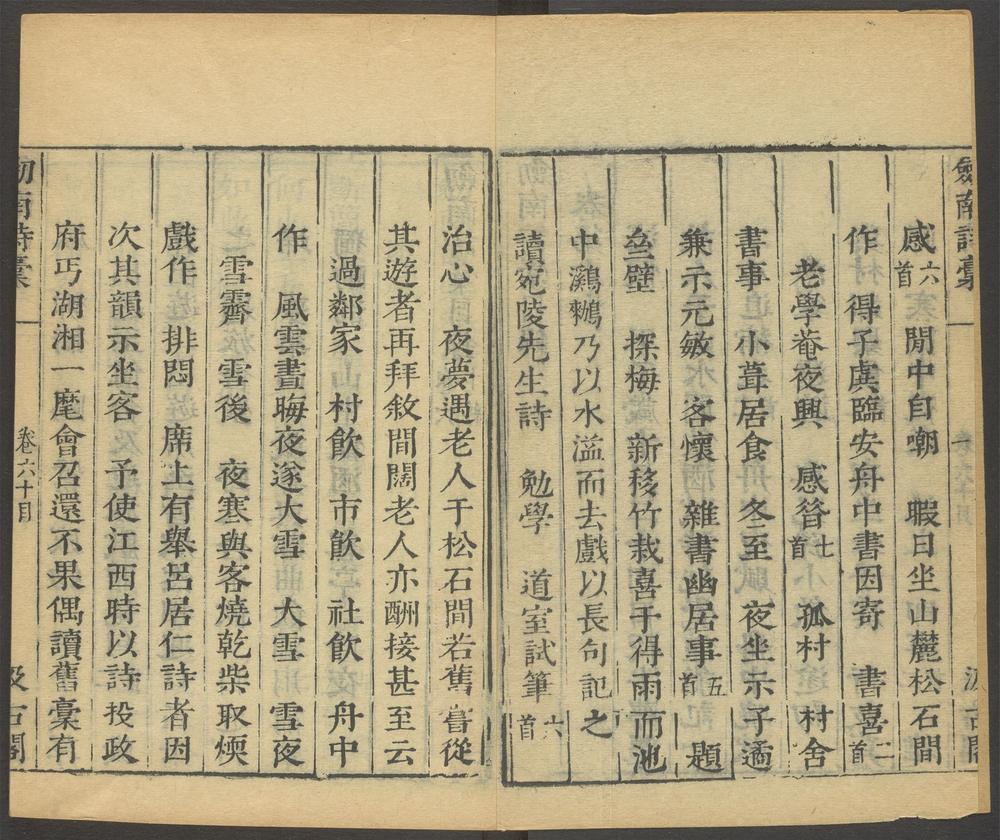 劒南詩稾 一 汲古閣
感六首 閒中自嘲 暇日坐山麓松石間
作 得子虡臨安舟中書因寄 書喜二首
老學菴夜興 感昔七首 孤村 村舍
書事 小葺居食 冬至 夜坐示子遹
兼示元敏 客懷 雜書幽居事五首 題
壁 探梅 新移竹栽喜于得雨而池
中鸂鶒乃以水溢而去戲以長句記之
讀宛陵先生詩 勉學 道室試筆六首
治心 夜夢遇老人于松石間若舊嘗從
其遊者再拜敘間闊老人亦酬接甚至云
過鄰家 村飲 市飲 社飲 舟中
作 風雲晝晦夜遂大雪 大雪 雪夜
雪霽 雪後 夜寒與客燒乾柴取煗
戲作 排悶 席上有舉呂居仁詩者因
次其韻示坐客 予使江西時以詩投政
府丐湖湘一麾會召還不果偶讀舊稾有
劒南詩稾 一 卷六十目 汲古閣